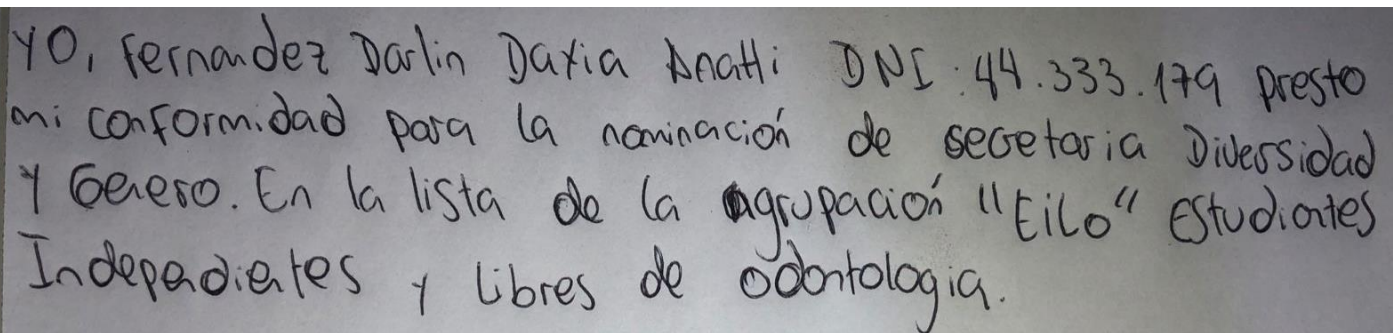 YO, Fernandez Darlin Daxia Anatti DNI: 44.333.179 presto
mi conformidad para la nominación de secetaria Diversidad
y Genero. En la lista de la agrupación "EiLo" Estudiantes
Independientes y Libres de odontologia.